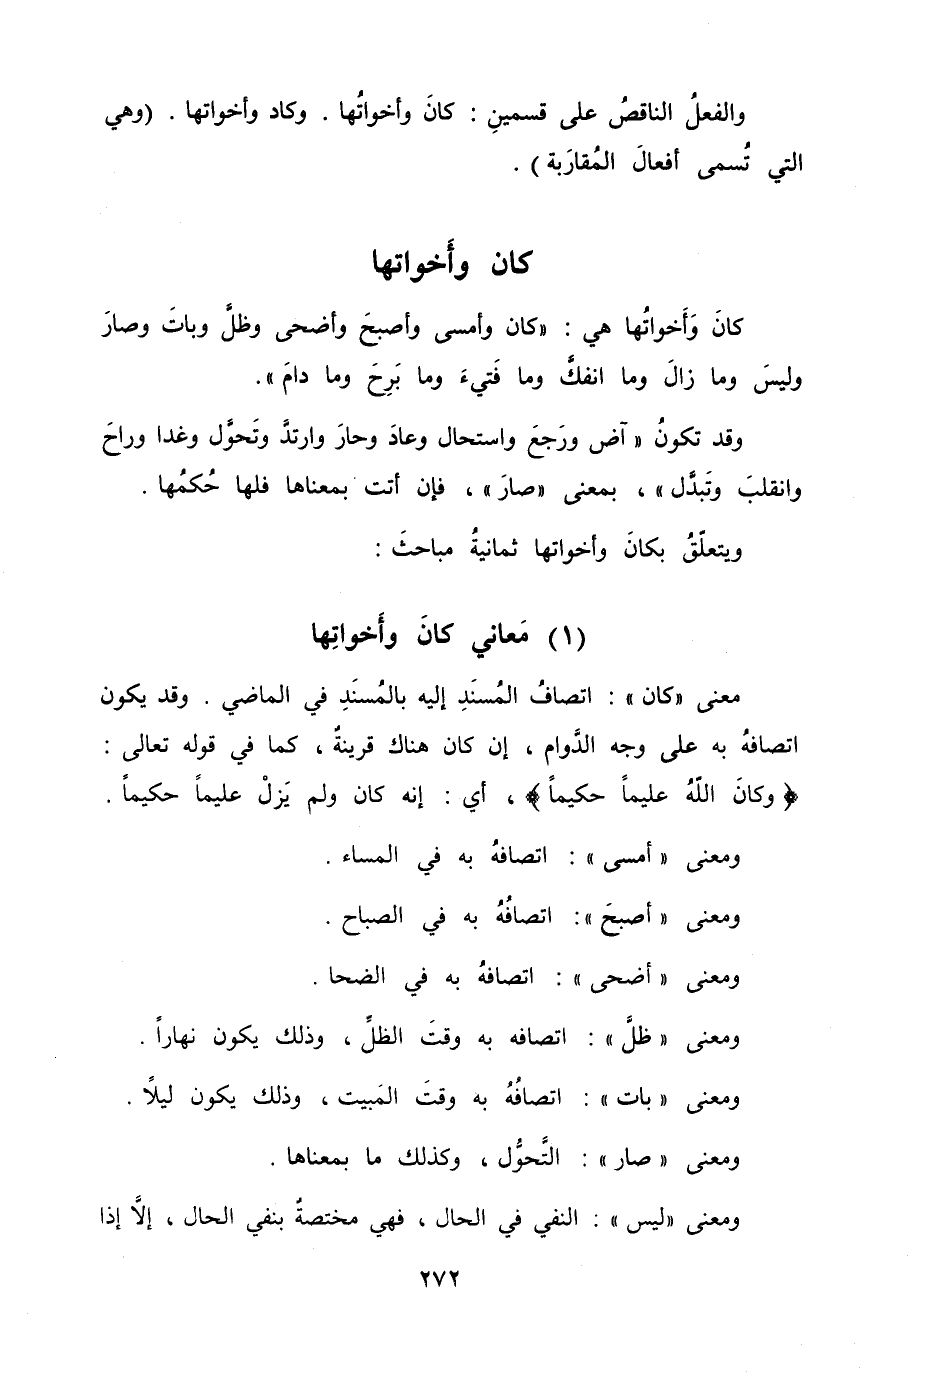 والفعلُ الناقصُ على قسمينِ : كانَ وأخواتُها . وكاد وأخواتها . (وهي
التي تُسمى أفعالَ المُقارَبة ) .
كان وأَخواتها
كانَ وَأَخواتُها هي : «كان وأمسى وأصبحَ وأضحى وظلَّ وباتَ وصارَ
وليسَ وما زالَ وما انفكَّ وما فَتيءَ وما بَرِحَ وما دامَ ».
وقد تكونُ « آض ورَجعَ واستحال وعادَ وحارَ وارتدَّ وتَحوَّل وغدا وراحَ
وانقلبَ وتَبدَّل » ، بمعنى «صارَ » ، فإن أتت بمعناها فلها حُكمُها .
ويتعلّقُ بكانَ وأخواتها ثمانيةُ مباحثَ :
(١) مَعاني كانَ وأَخواتِها
معنى «كان » : اتصافُ المُسنَدِ إليه بالمُسنَدِ في الماضي . وقد يكون
اتصافهُ به على وجه الدَّوام ، إن كان هناك قرينةٌ ، كما في قوله تعالى :
﴿ وكانَ اللّهُ عليماً حكيماً ﴾ ، أي : إنه كان ولم يَزلْ عليماً حكيماً .
ومعنى « أمسى » : اتصافهُ به في المساء .
ومعنى « أصبحَ »: اتصافُهُ به في الصباح .
ومعنى « أضحى » : اتصافهُ به في الضحا .
ومعنى « ظلَّ » : اتصافه به وقتَ الظلِّ ، وذلك يكون نهاراً .
ومعنى « بات » : اتصافُهُ به وقتَ المَبيت ، وذلك يكون ليلًا .
ومعنى « صار » : التَّحوُّل ، وكذلك ما بمعناها .
ومعنى «ليس » : النفي في الحال ، فهي مختصةٌ بنفي الحال ، إلَّا إذا
٢٧٢